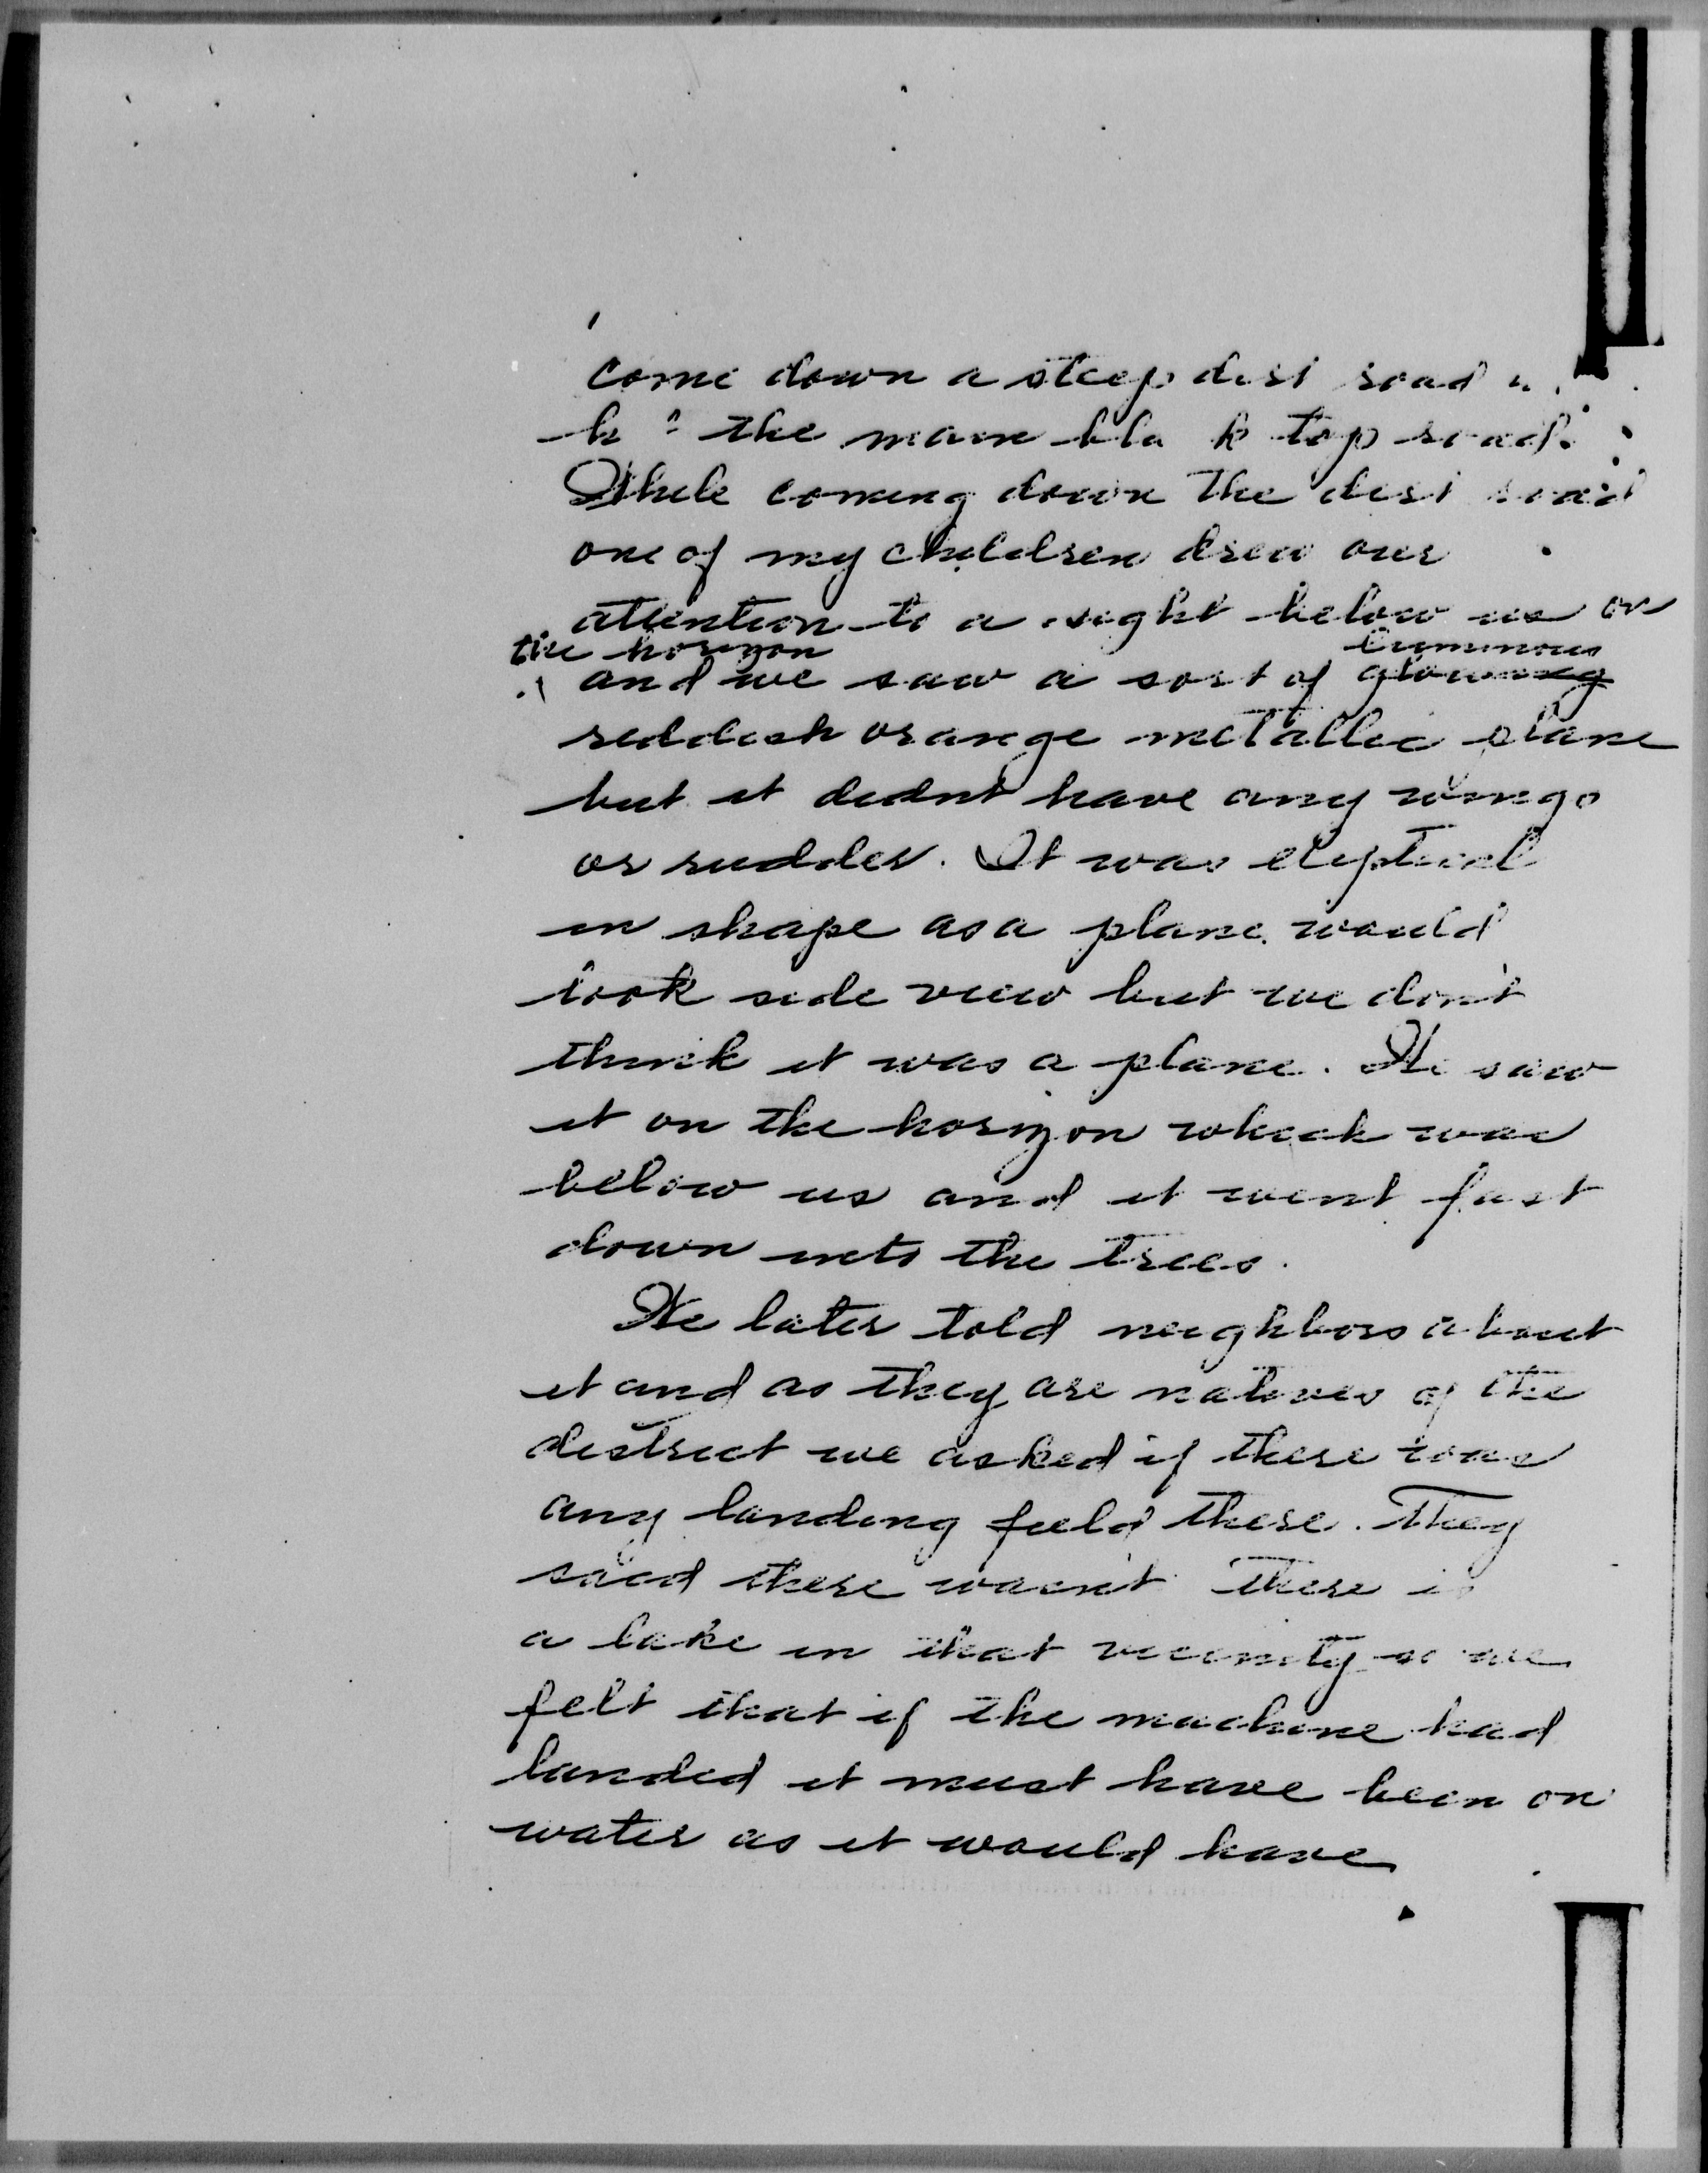 come down a steep dirt road
the main bla k top road.
While coming down the dirt road
one of my children drew our
attention to a sight below us on
the horizon luminous
and we saw a sort of glowing
reddish orange metallic plane
but it didnt have any wings
or rudder. It was eliptical
in shape as a plane would
look side view but we don't
think it was a plane. We saw
it on the horizon which was
below us and it went fast
down into the trees.
We later told neighbors about
it and as they are natives of the
district we asked if there was
any landing field there. They
said there wasn't There is
a lake in that vicinity so we
felt that if the machine had
landed it must have been on
water as it would have